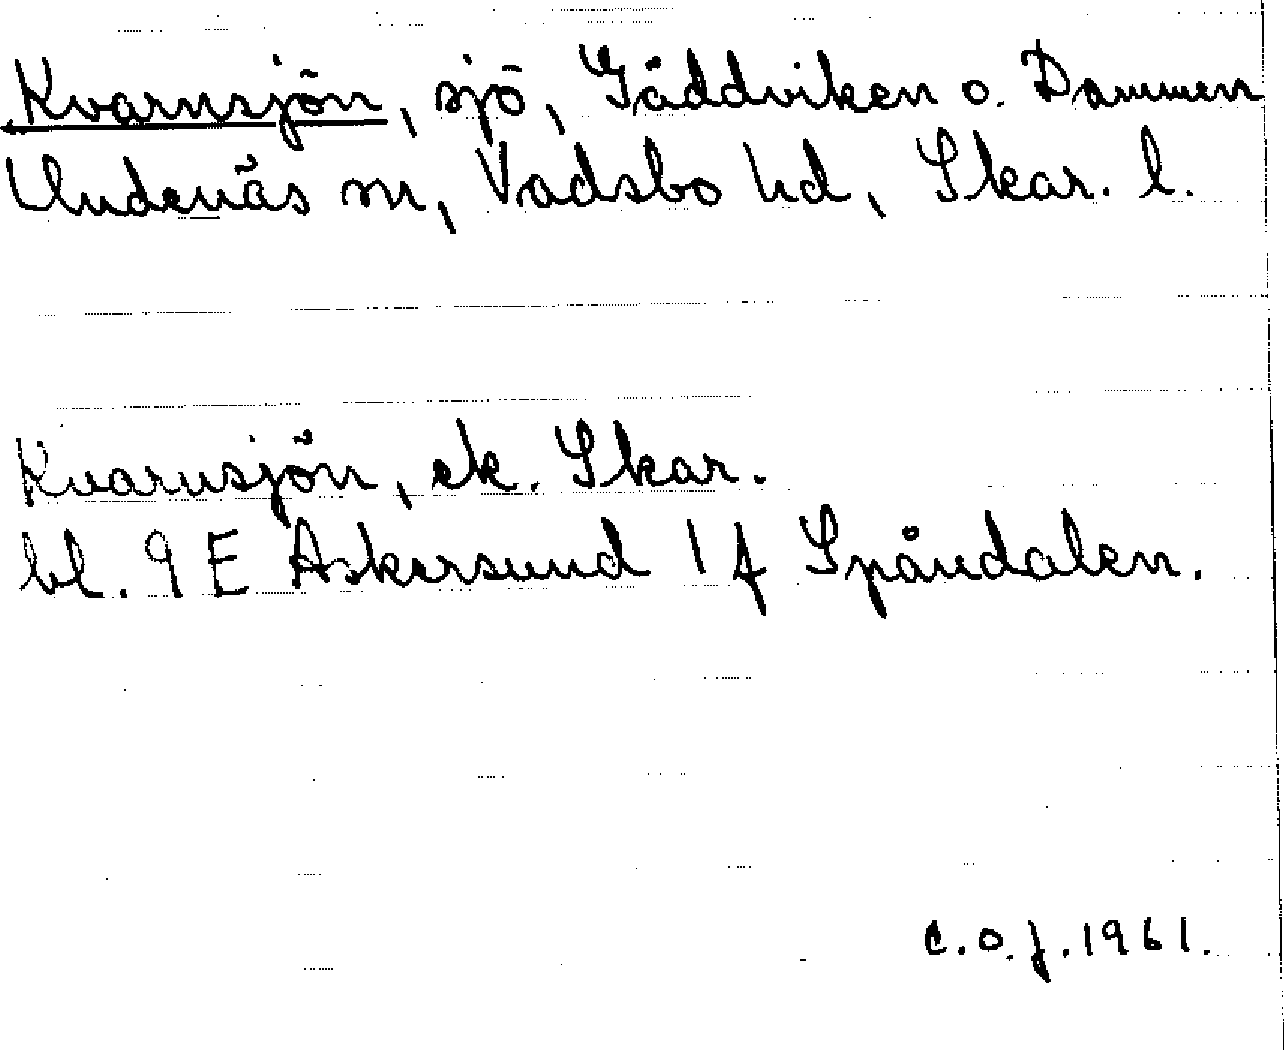 Kvarnsjön, sjö, Gäddviken o. Dammen
Undenäs sn, Vadsbo hd, Skar. l.
Kvarnsjön, ek. Skar.
bl. 9 E Askersund 1 f Spåndalen.
C.O.J. 1961.